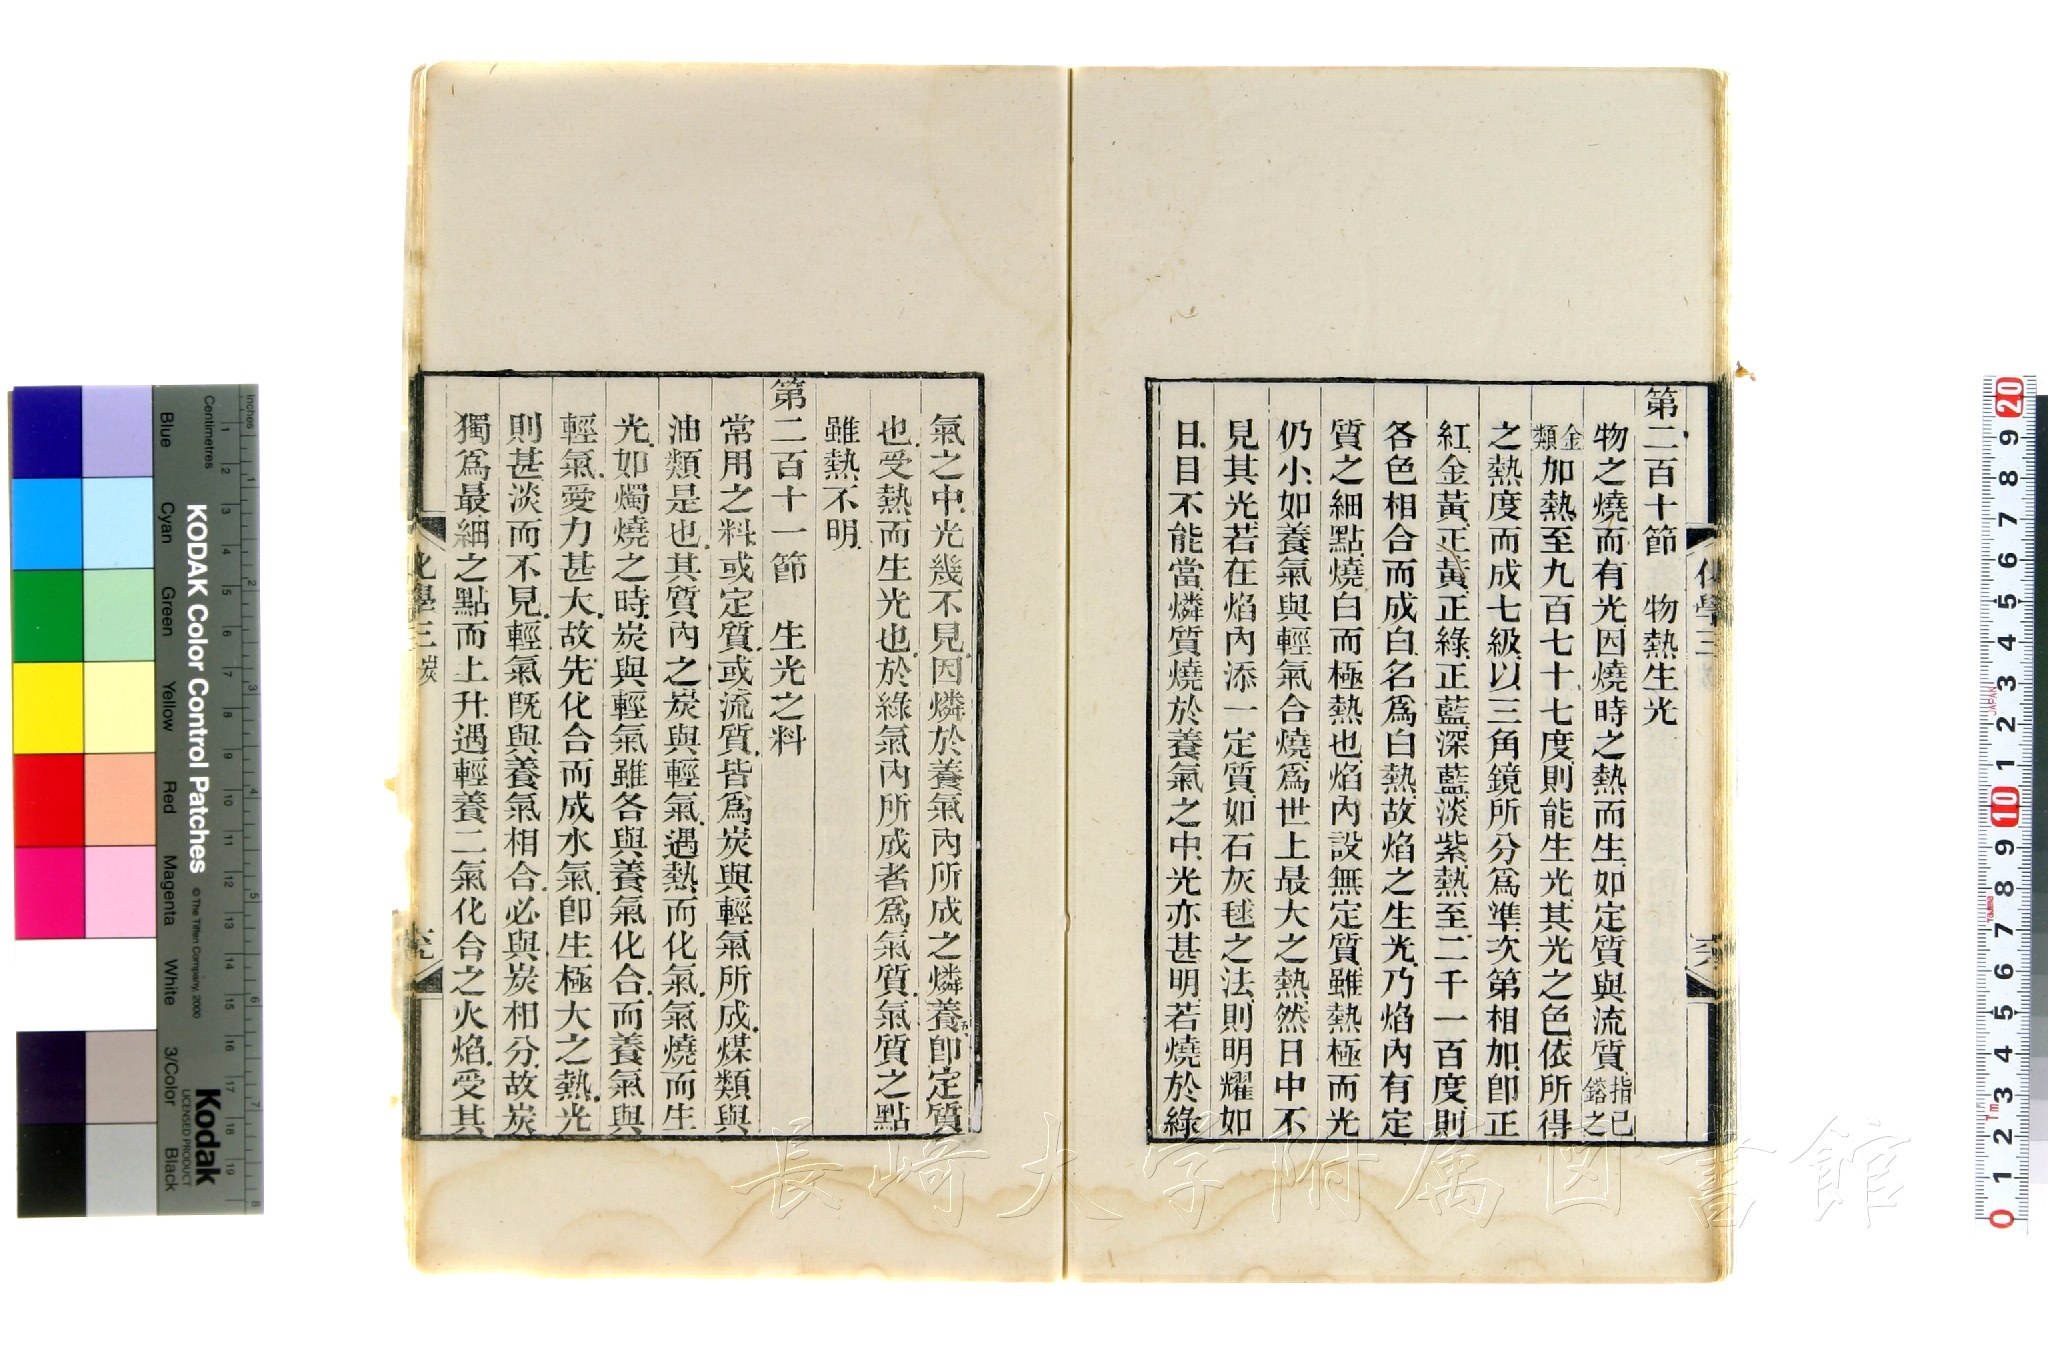 第二百十節　物熱生光
物之燒而有光因燒時之熱而生如定質與流質指已鎔之
金類加熱至九百七十七度則能生光其光之色依所得
之熱度而成七級以三角鏡所分爲準次第相加卽正
紅金黃正黃正綠正藍深藍淡紫熱至二千一百度則
各色相合而成白名爲白熱故焰之生光乃焰內有定
質之細點燒白而極熱也焰內設無定質雖熱極而光
仍小如養氣與輕氣合燒爲世上最大之熱然日中不
見其光若在焰內添一定質如石灰毬之法則明耀如
日目不能當燐質燒於養氣之中光亦甚明若燒於綠
氣之中光幾不見因燐於養氣內所成之燐養五卽定質
也受熱而生光也於綠氣內所成者爲氣質氣質之點
雖熱不明
第二百十一節　生光之料
常用之料或定質或流質皆爲炭與輕氣所成煤類與
油類是也其質內之炭與輕氣遇熱而化氣氣燒而生
光如燭燒之時炭與輕氣雖各與養氣化合而養氣與
輕氣愛力甚大故先化合而成水氣卽生極大之熱光
則甚淡而不見輕氣旣與養氣相合必與炭相分故炭
獨爲最細之點而上升遇輕養二氣化合之火焰受其
化學三 炭
長崎大学附属図書館
KODAK Color Control Patches
© The Tiffen Company, 2000
Kodak
LICENSED PRODUCT
Blue
Cyan
Green
Yellow
Red
Magenta
White
3/Color
Black
Inches
Centimetres
JAPAN